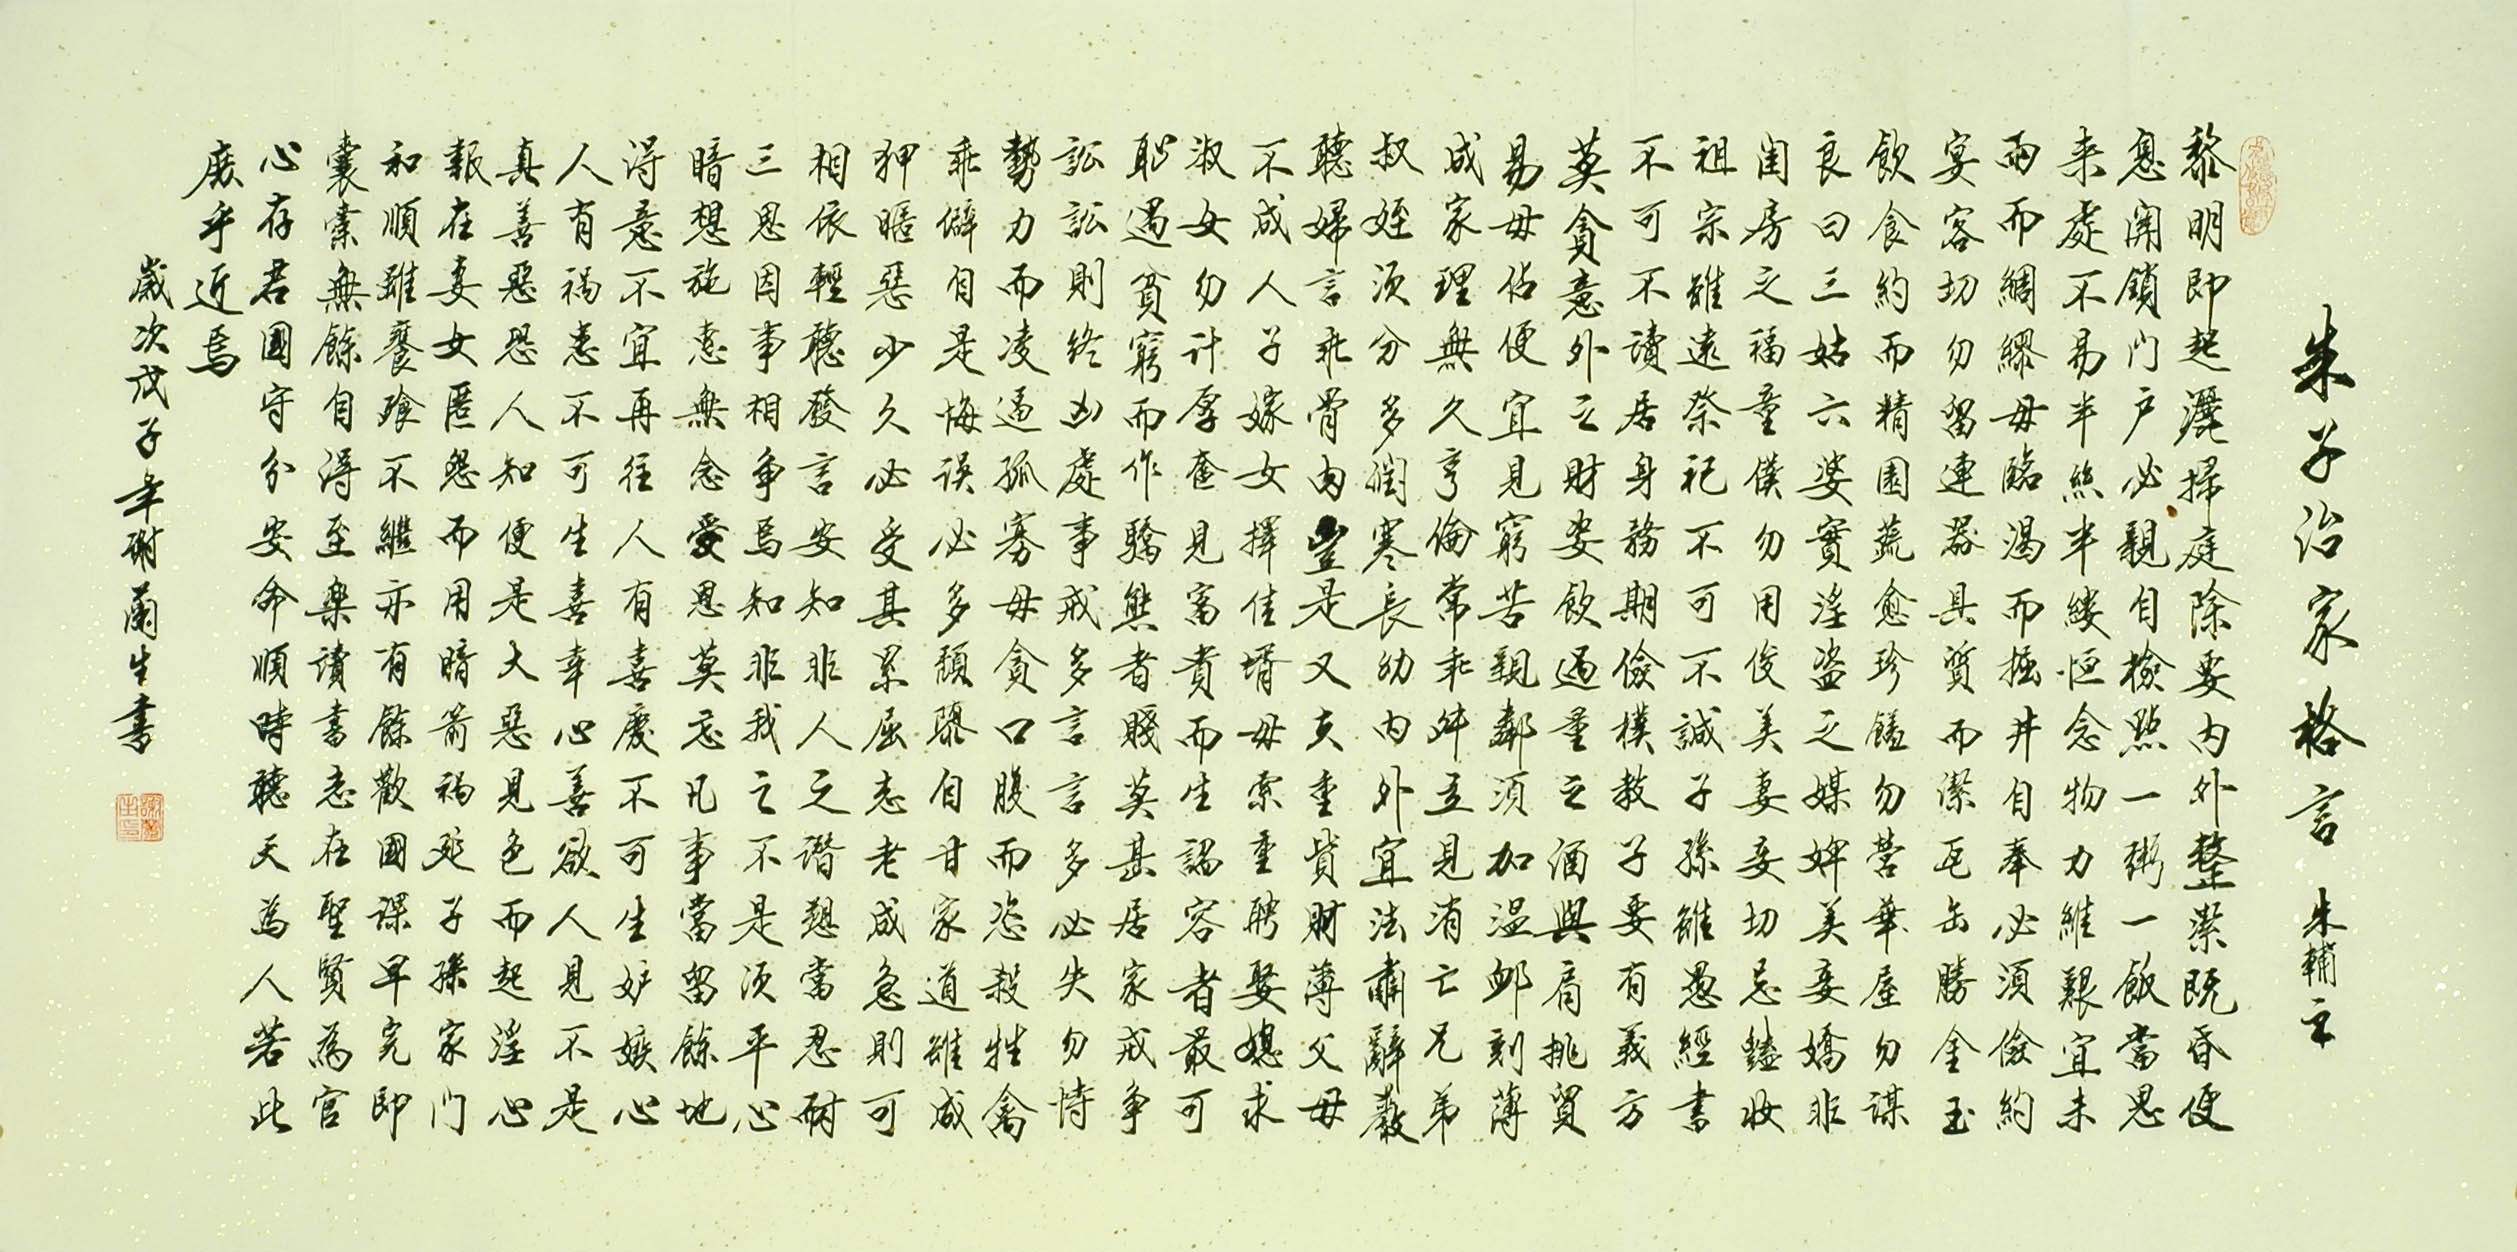 朱子治家格言 朱輔之
黎明即起灑掃庭除要内外整潔既昏便
息関鎖门户必親自檢點一粥一飯當思
来處不易半絲半縷恒念物力維艱宜未
雨而綢繆毋臨渴而掘井自奉必須儉約
宴客切勿留連器具質而潔瓦缶勝金玉
飲食約而精園蔬愈珍饈勿營華屋勿謀
良田三姑六婆實淫盗之媒婢美妾嬌非
閨房之福童僕勿用俊美妻妾切忌豔妝
祖宗雖遠祭祀不可不誠子孫雖愚經書
不可不讀居身務期儉樸教子要有義方
莫貪意外之財莫飲過量之酒與肩挑貿
易毋佔便宜見窮苦親鄰須加温卹刻薄
成家理無久亨倫常乖舛立見消亡兄弟
叔姪須分多潤寡長幼内外宜法肅辭嚴
聽婦言乖骨肉豈是丈夫重貲財薄父母
不成人子嫁女擇佳壻毋索重聘娶媳求
淑女勿计厚奩見富貴而生諂容者最可
耻遇貧窮而作驕態者賤莫甚居家戒争
訟訟則終凶處事戒多言言多必失勿恃
勢力而凌逼孤寡毋貪口腹而恣殺牲禽
乖僻自是悔误必多頽隳自甘家道雖成
狎暱惡少久必受其累屈志老成急則可
相依輕聽發言安知非人之譖愬當忍耐
三思因事相争焉知非我之不是须平心
暗想施恵無念愛恩莫忘凡事當留餘地
得意不宜再往人有喜慶不可生妒嫉心
人有禍患不可生喜幸心善欲人見不是
真善惡恐人知便是大惡見色而起淫心
報在妻女匿怨而用暗箭禍延子孫家门
和順雖饔飧不繼亦有餘歡國課早完即
囊橐無餘自得至樂讀書志在聖賢為官
心存君國守分安命順時聽天為人若此
庶乎近焉
歲次戊子年謝蘭生書